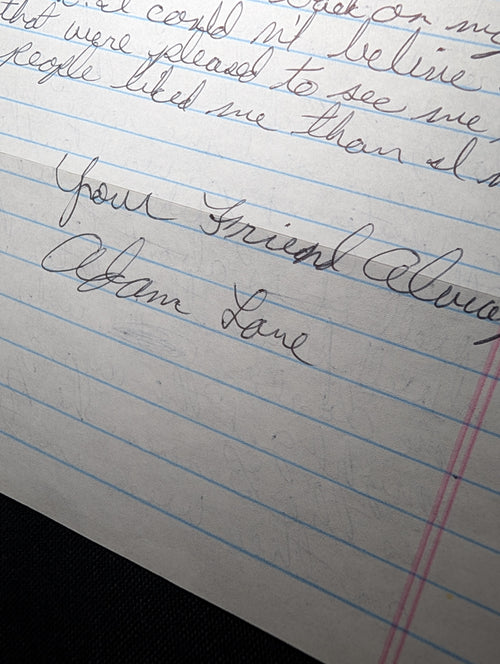 back on my
I could n't belive
that were pleased to see me,
people liked me than I
Your Friend Alway
Adam Lane